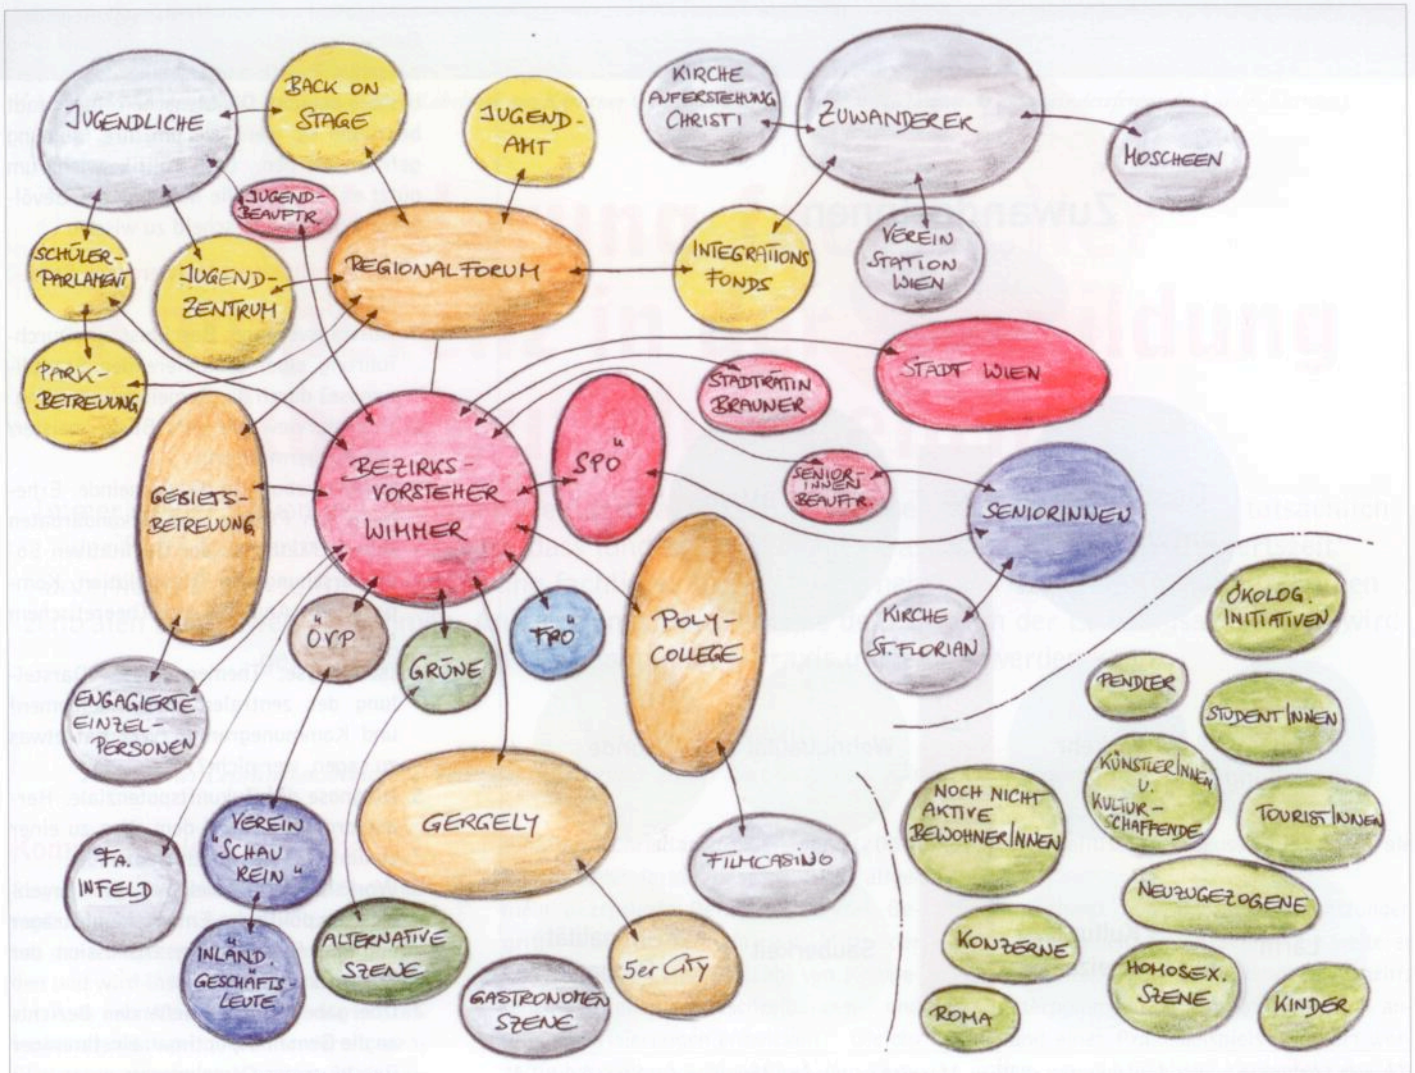 JUGENDLICHE
BACK ON
STAGE
JUGEND-
AMT
KIRCHE
AUFERSTEHUNG
CHRISTI
ZUWANDERER
MOSCHEEN
JUGEND-
BEAUFTR.
SCHÜLER-
PARLAMENT
JUGEND-
ZENTRUM
REGIONALFORUM
INTEGRATIONS
FONDS
VEREIN
STATION
WIEN
PARK-
BETREUUNG
STADTRÄTIN
BRAUNER
STADT WIEN
GEBIETS-
BETREUUNG
BEZIRKS-
VORSTEHER
WIMMER
SPÖ
SENIOR-
INNEN
BEAUFTR.
SENIORINNEN
ÖVP
GRÜNE
FPÖ
POLY-
COLLEGE
KIRCHE
ST. FLORIAN
ÖKOLOG.
INITIATIVEN
PENDLER
STUDENT/INNEN
ENGAGIERTE
EINZEL
PERSONEN
KÜNSTLER/INNEN
U.
KULTUR-
SCHAFFENDE
TOURIST/INNEN
NOCH NICHT
AKTIVE
BEWOHNER/INNEN
FA.
INFELD
VEREIN
"SCHAU
REIN"
GERGELY
FILMCASINO
NEUZUGEZOGENE
INLÄND.
GESCHÄFTS-
LEUTE
ALTERNATIVE
SZENE
GASTRONOMEN
SZENE
5er CITY
KONZERNE
HOMOSEX.
SZENE
KINDER
ROMA